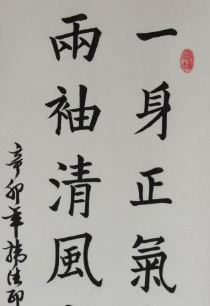 一身正氣
兩袖清風
辛卯年